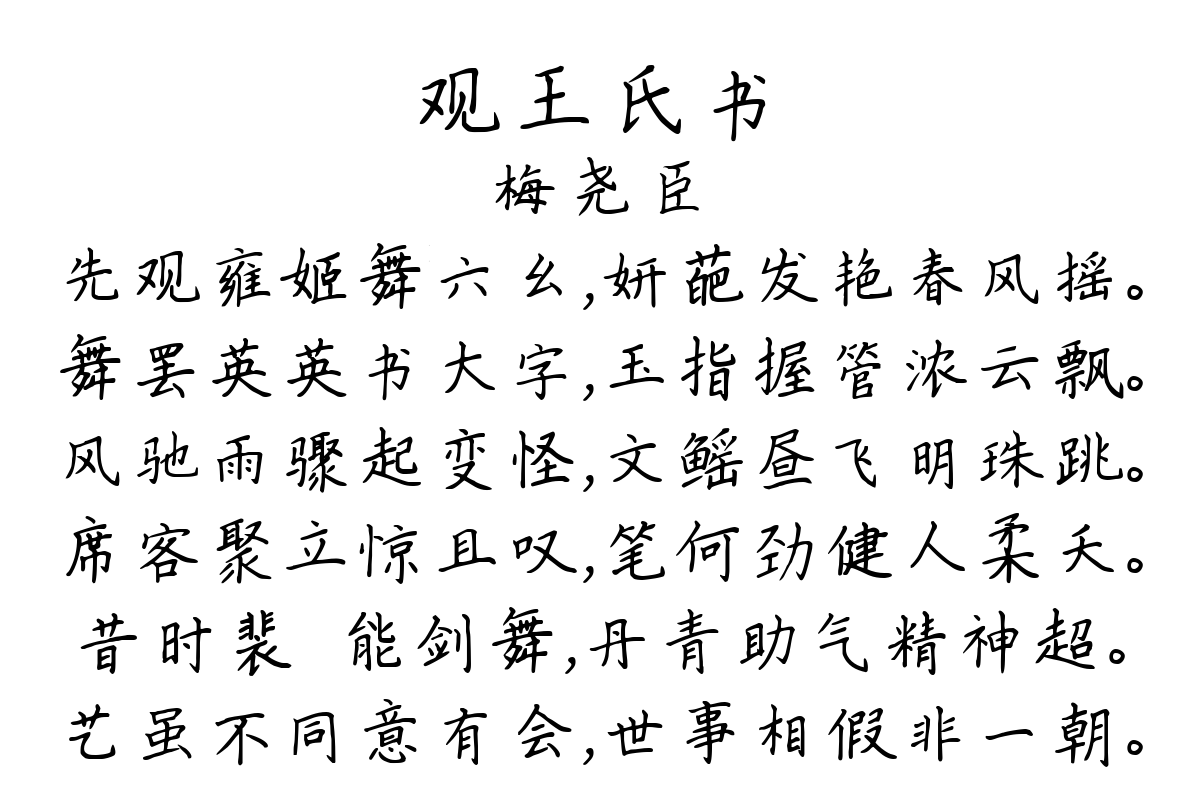 观王氏书
梅尧臣
先观雍姬舞六幺,妍葩发艳春风摇。
舞罢英英书大字,玉指握管浓云飘。
风驰雨骤起变怪,文鳐昼飞明珠跳。
席客聚立惊且叹,笔何劲健人柔夭。
昔时裴 能剑舞,丹青助气精神超。
艺虽不同意有会,世事相假非一朝。